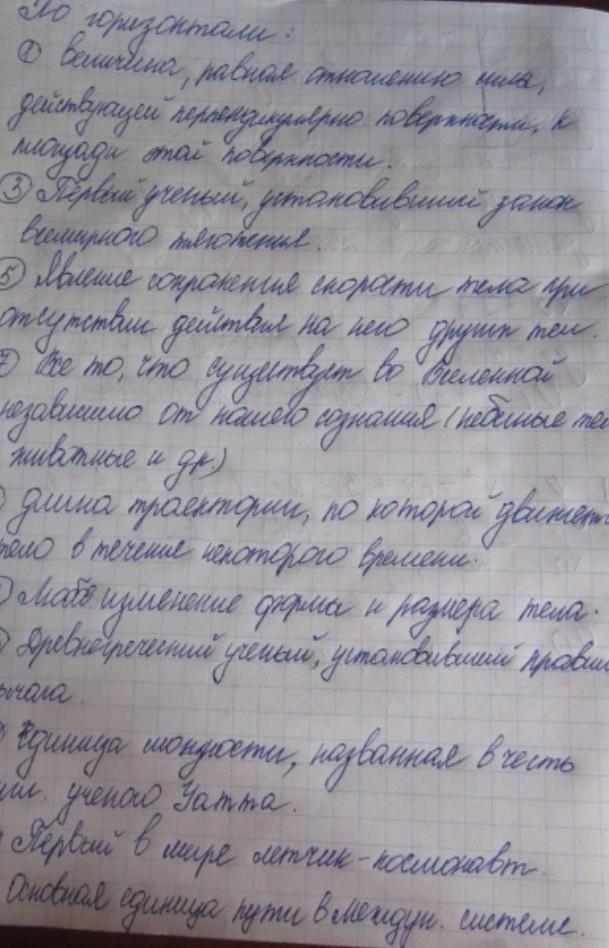 По горизонтали:
① величина, равная отношению силы,
действующей перпендикулярно поверхности, к
площади этой поверхности.
③ Первый ученый, установивший закон
всемирного тяготения.
⑤ Явление сохранения скорости тела при
отсутствии действия на него других тел.
7 Все то, что существует во Вселенной
независимо от нашего сознания (небесные тел
животные и др.)
длина траектории, по которой движетс
тело в течение некоторого времени.
Любое изменение формы и размера тела.
Древнегреческий ученый, установивший правил
рычага.
Единица мощности, названная в честь
ученого Уатта.
Первый в мире летчик-космонавт.
Основная единица пути в Междун. системе.